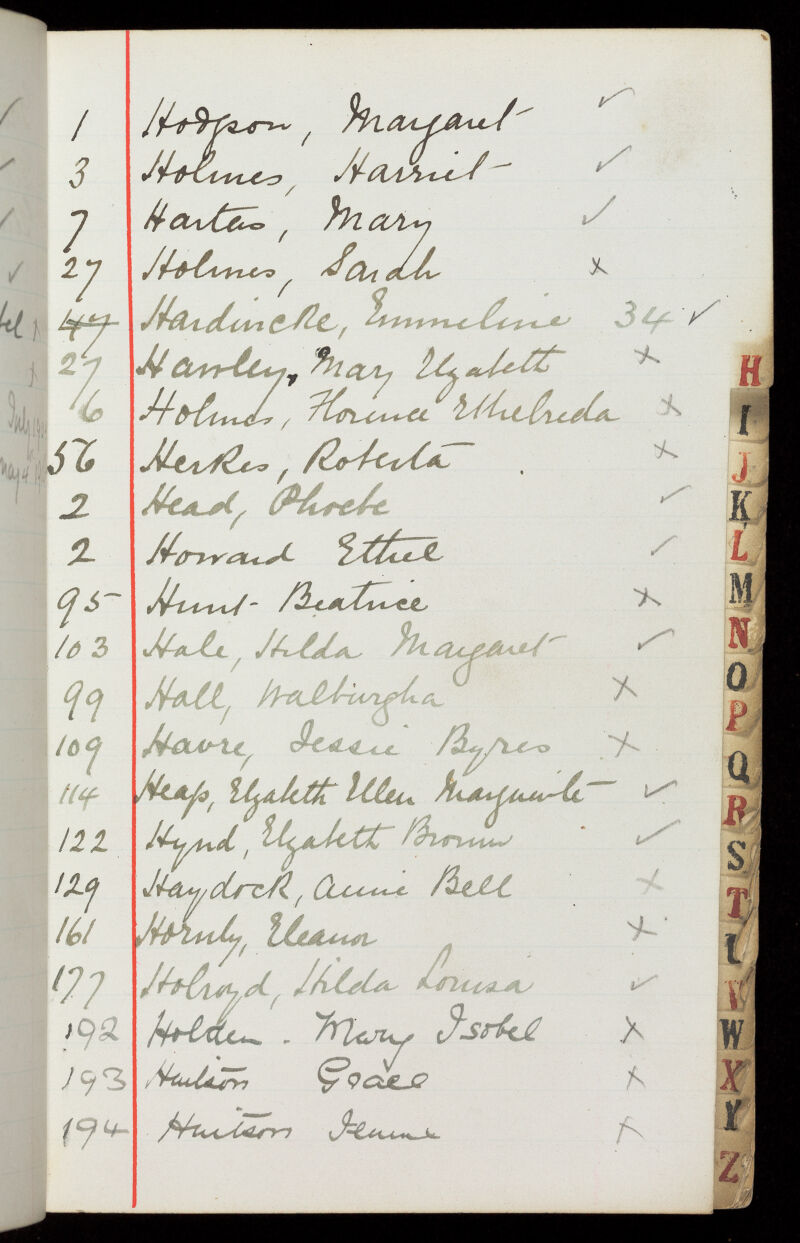 1 Hodgson, Margaret ✓
3 Holmes, Harriet ✓
7 Hartas, Mary ✓
27 Holmes, Sarah ×
47 Hardincke, Emmeline 34 ✓
27 Hawley, Mary Elizabeth ×
6 Holmes, Florence Ethelreda ×
56 Herkes, Roberta ×
2 Head, Phoebe ✓
2 Howard Ethel ✓
95 Hunt- Beatrice ×
103 Hale, Hilda Margaret ✓
99 Hall, Walburgha ×
109 Havre, Jessie Byres ×
114 Heap, Elizabeth Ellen Marguerite ✓
122 Hynd, Elizabeth Brown ✓
129 Haydock, Annie Bell ×
161 Hornby, Eleanor ×
177 Holroyd, Hilda Louisa ✓
192 Holden - Mary Isobel ×
193 Huitson Grace ×
194 Huitson ×
H
I
J
K
L
M
N
O
P
Q
R
S
T
U
V
W
X
Y
Z